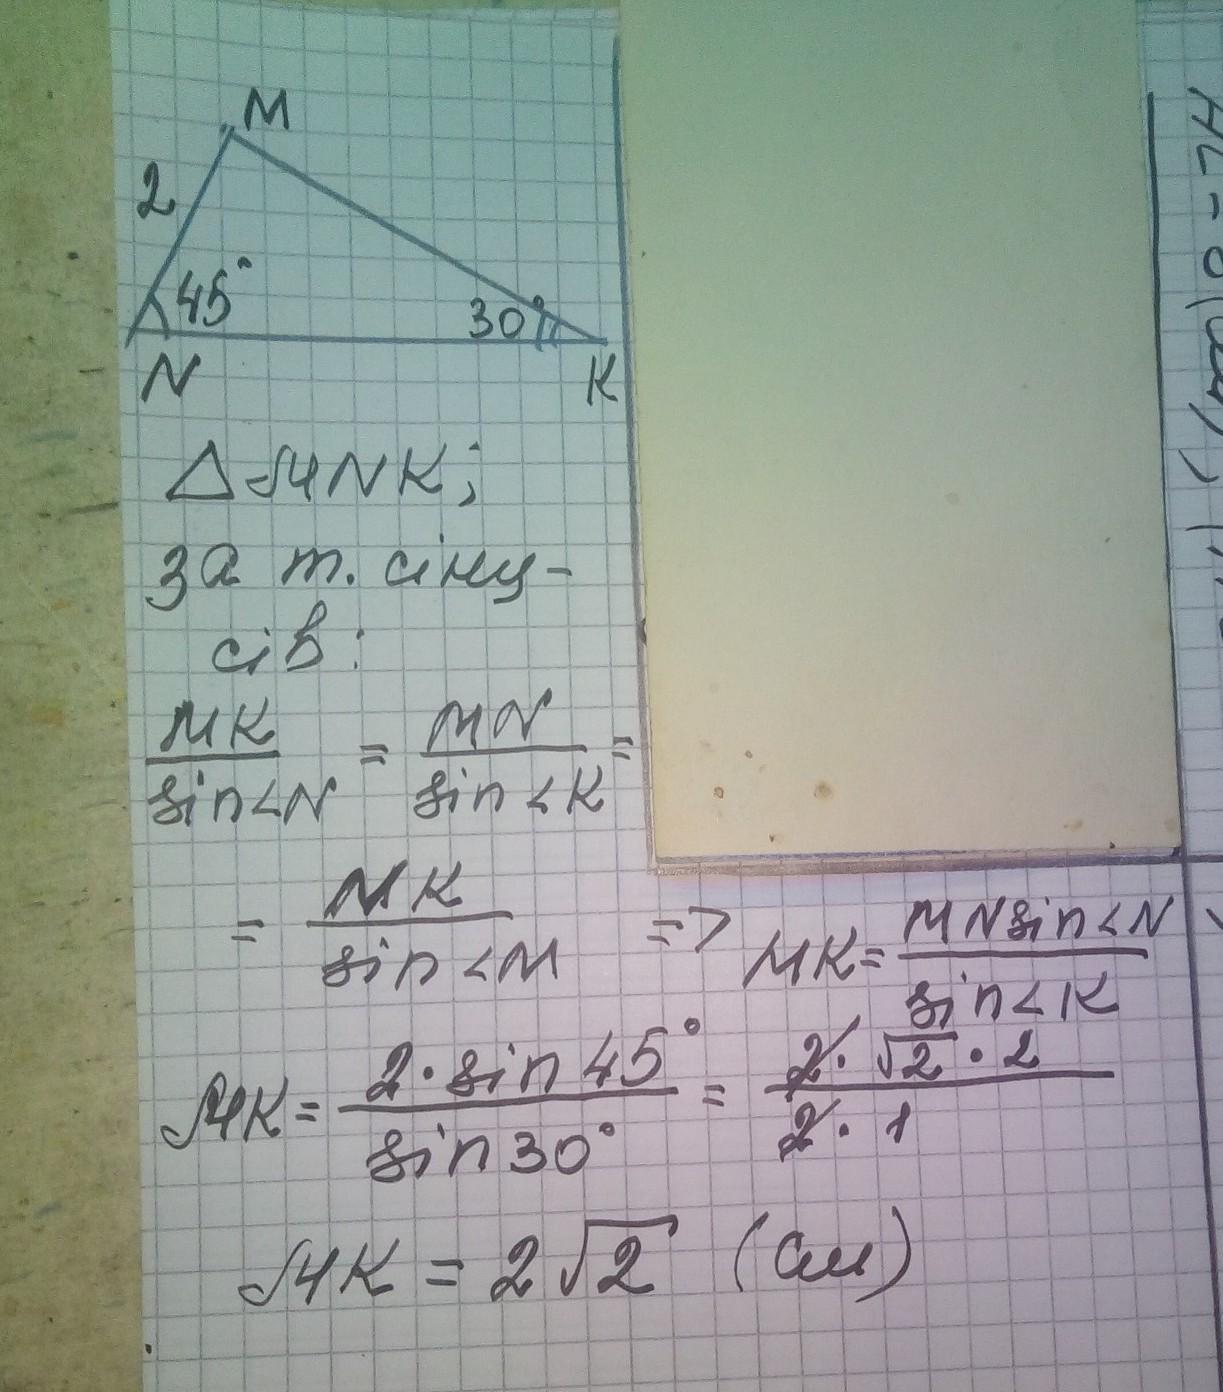 M
2
45°
30°
N
K
△MNK;
за т. сіну-
сів:
MK/sin<N = MN/sin<K =
= NK/sin<M => MK = MN sin<N/sin<K
MK = 2·sin45°/sin30° = 2·√2·2/2·1
MK = 2√2 (см)